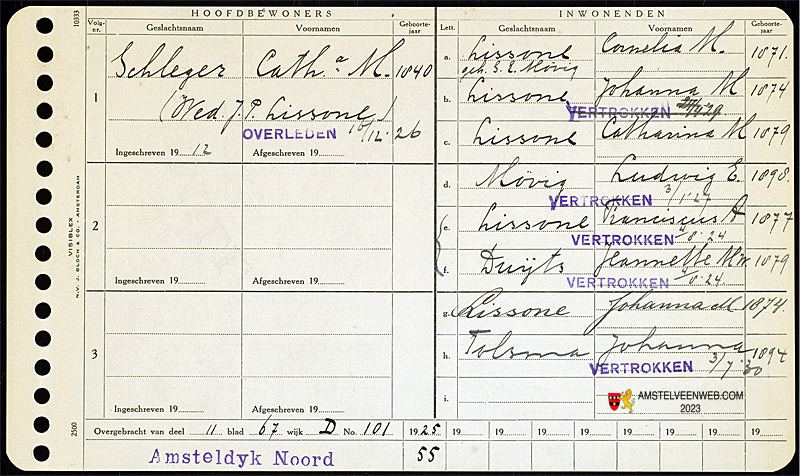 HOOFDBEWONERS
Volg-nr. Geslachtsnaam Voornamen Geboorte-jaar
1 Schleger Cath.a M. 1840
(Wed. J. P. Lissone)
OVERLEDEN 10/12 '26
Ingeschreven 1912 Afgeschreven 19
2
Ingeschreven 19 Afgeschreven 19
3
Ingeschreven 19 Afgeschreven 19
INWONENDEN
Lett. Geslachtsnaam Voornamen Geboorte-jaar
a. Lissone Cornelia M. 1871.
geh. S. E. Mövig
b. Lissone Johanna M 1874
VERTROKKEN
c. Lissone Catharina M 1879
d. Mövig Ludwig E. 1898.
VERTROKKEN 3/1 '27
e. Lissone Franciscus A 1877
VERTROKKEN 4/8 '24
f. Duijts Jeannette 1879
VERTROKKEN 4/8 '24.
g. Lissone Johanna M 1874.
h. Tolsma Johanna 1894
VERTROKKEN 3/7 '30
i.
AMSTELVEENWEB.COM
2023
Overgebracht van deel 11 blad 67 wijk D No. 101 1925 19 19 19 19 19 19 19 19
Amsteldyk Noord 55
10333
VISIBLEX
N.V. J. BLOCH & CO. - AMSTERDAM
2500